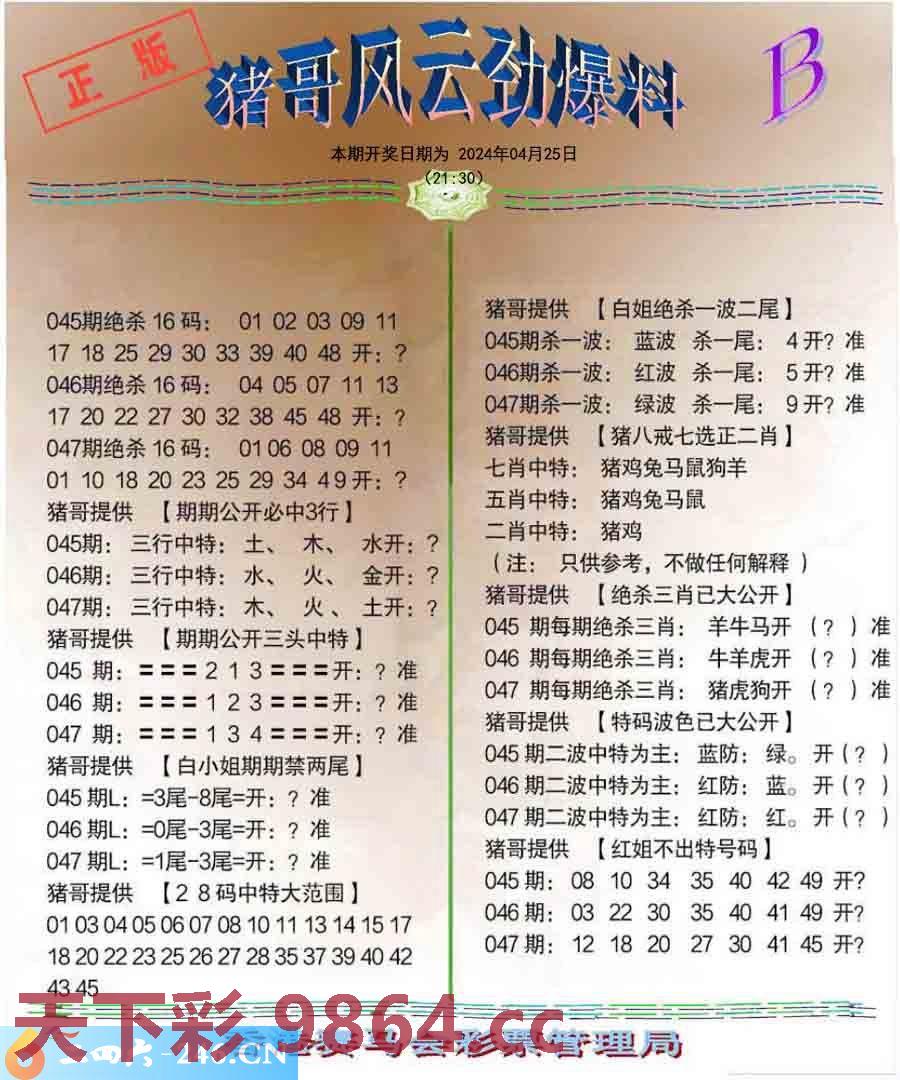 正版
猪哥风云劲爆料
B
本期开奖日期为 2024年04月25日
(21:30)
045期绝杀 16 码： 01 02 03 09 11
17 18 25 29 30 33 39 40 48 开：?
046期绝杀 16 码： 04 05 07 11 13
17 20 22 27 30 32 38 45 48 开：?
047期绝杀 16 码： 01 06 08 09 11
01 10 18 20 23 25 29 34 4 9 开：?
猪哥提供 【期期公开必中3行】
045期：三行中特：土、 木、 水开：?
046期：三行中特：水、 火、 金开：?
047期：三行中特：木、 火 、 土开：?
猪哥提供 【期期公开三头中特】
045 期：===2 1 3 ===开：? 准
046 期：===1 2 3 ===开：? 准
047 期：===1 3 4 ===开：? 准
猪哥提供 【白小姐期期禁两尾】
045 期L：=3尾-8尾=开：? 准
046 期L：=0尾-3尾=开：? 准
047 期L：=1尾-3尾=开：? 准
猪哥提供 【2 8 码中特大范围】
01 03 04 05 06 07 08 10 11 13 14 15 17
18 20 22 23 25 26 27 28 35 37 39 40 42
43 45
猪哥提供 【白姐绝杀一波二尾】
045期杀一波： 蓝波 杀一尾： 4 开? 准
046期杀一波： 红波 杀一尾： 5 开? 准
047期杀一波： 绿波 杀一尾： 9 开? 准
猪哥提供 【猪八戒七选正二肖】
七肖中特： 猪鸡兔马鼠狗羊
五肖中特： 猪鸡兔马鼠
二肖中特： 猪鸡
（注： 只供参考，不做任何解释 ）
猪哥提供 【绝杀三肖已大公开】
045 期每期绝杀三肖： 羊牛马开 （? ）准
046 期每期绝杀三肖： 牛羊虎开 （? ）准
047 期每期绝杀三肖： 猪虎狗开 （? ）准
猪哥提供 【特码波色已大公开】
045 期二波中特为主：蓝防：绿。开（? ）
046 期二波中特为主：红防：蓝。开（? ）
047 期二波中特为主：红防：红。开（? ）
猪哥提供 【红姐不出特号码】
045 期： 08 10 34 35 40 42 49 开?
046 期： 03 22 30 35 40 41 49 开?
047 期： 12 18 20 27 30 41 45 开?
天下彩 9864.cc
二四六-246.CN
赛马会彩票管理局